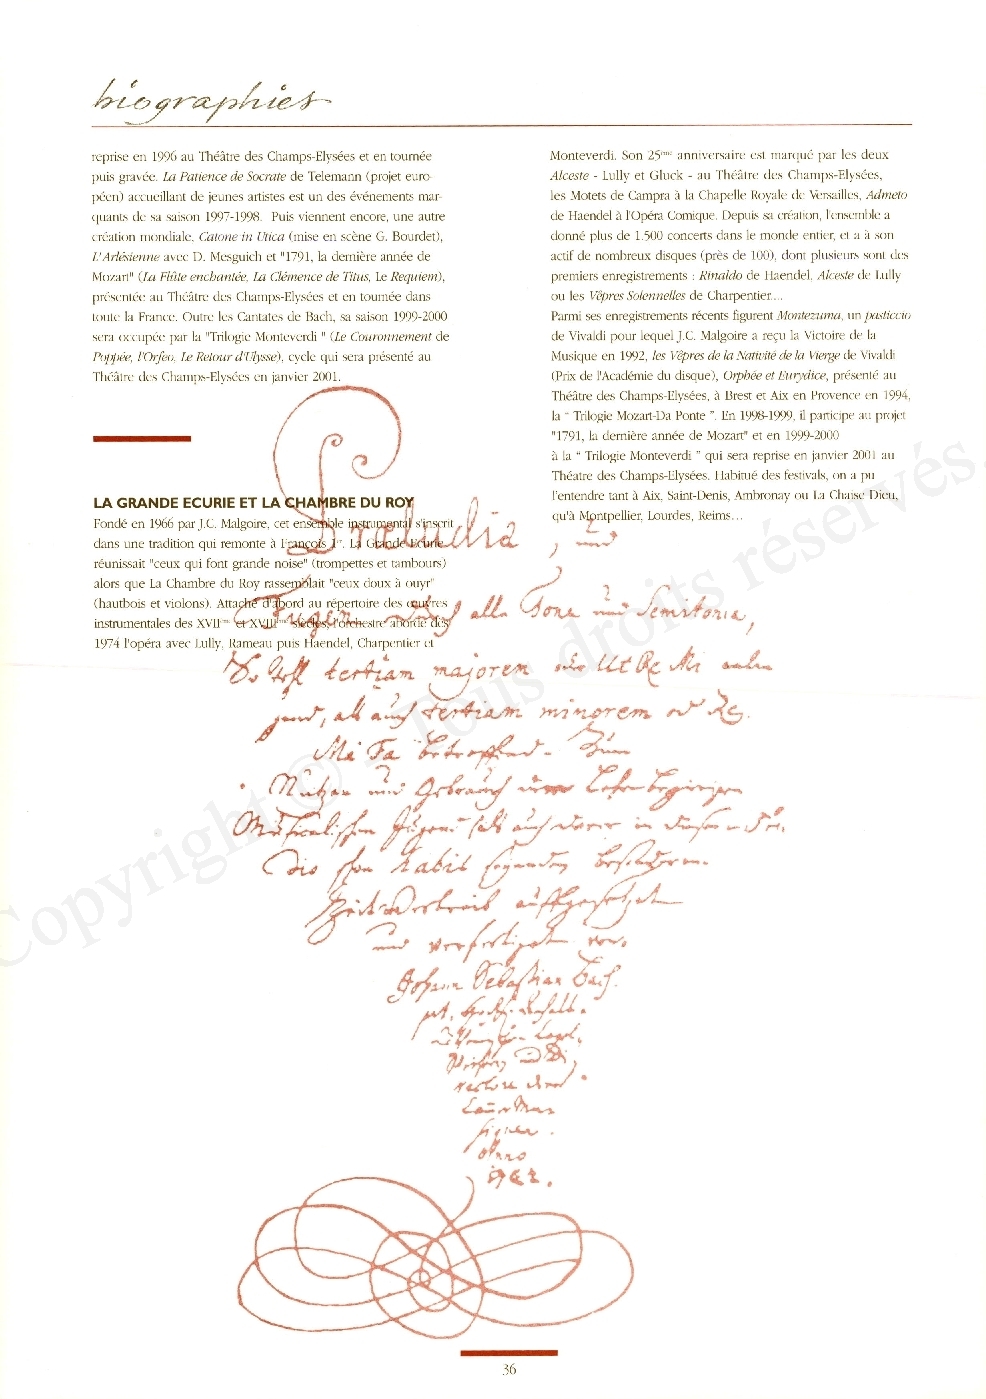 biographies
reprise en 1996 au Théâtre des Champs-Elysées et en tournée
puis gravée. La Patience de Socrate de Telemann (projet euro-
péen) accueillant de jeunes artistes est un des événements mar-
quants de sa saison 1997-1998. Puis viennent encore, une autre
création mondiale, Catone in Utica (mise en scène G. Bourdet),
L'Arlésienne avec D. Mesguich et "1791, la dernière année de
Mozart" (La Flûte enchantée, La Clémence de Titus, Le Requiem),
présentée au Théâtre des Champs-Elysées et en tournée dans
toute la France. Outre les Cantates de Bach, sa saison 1999-2000
sera occupée par la "Trilogie Monteverdi " (Le Couronnement de
Poppée, l'Orfeo, Le Retour d'Ulysse), cycle qui sera présenté au
Théâtre des Champs-Elysées en janvier 2001.
LA GRANDE ECURIE ET LA CHAMBRE DU ROY
Fondé en 1966 par J.C. Malgoire, cet ensemble instrumental s'inscrit
dans une tradition qui remonte à François 1er. La Grande Ecurie
réunissait "ceux qui font grande noise" (trompettes et tambours)
alors que La Chambre du Roy rassemblait "ceux doux à ouyr"
(hautbois et violons). Attaché d'abord au répertoire des œuvres
instrumentales des XVIIème et XVIIIème siècles, l'orchestre aborde dès
1974 l'opéra avec Lully, Rameau puis Haendel, Charpentier et
Monteverdi. Son 25ème anniversaire est marqué par les deux
Alceste - Lully et Gluck - au Théâtre des Champs-Elysées,
les Motets de Campra à la Chapelle Royale de Versailles, Admeto
de Haendel à l'Opéra Comique. Depuis sa création, l'ensemble a
donné plus de 1.500 concerts dans le monde entier, et a à son
actif de nombreux disques (près de 100), dont plusieurs sont des
premiers enregistrements : Rinaldo de Haendel, Alceste de Lully
ou les Vêpres Solennelles de Charpentier....
Parmi ses enregistrements récents figurent Montezuma, un pasticcio
de Vivaldi pour lequel J.C. Malgoire a reçu la Victoire de la
Musique en 1992, les Vêpres de la Nativité de la Vierge de Vivaldi
(Prix de l'Académie du disque), Orphée et Eurydice, présenté au
Théâtre des Champs-Elysées, à Brest et Aix en Provence en 1994,
la " Trilogie Mozart-Da Ponte ". En 1998-1999, il participe au projet
"1791, la dernière année de Mozart" et en 1999-2000
à la " Trilogie Monteverdi " qui sera reprise en janvier 2001 au
Théatre des Champs-Elysées. Habitué des festivals, on a pu
l'entendre tant à Aix, Saint-Denis, Ambronay ou La Chaise Dieu,
qu'à Montpellier, Lourdes, Reims...
Praeludia, und
Fugen durch alle Tone und Semitonia,
So wohl tertiam majorem oder Ut Re Mi anlan
gend, als auch tertiam minorem oder Re
Mi Fa betreffend. Zum
Nutzen und Gebrauch der Lehrbegierigen
Musicalischen Jugend als auch derer in diesem
studio schon habil seyenden besonderem
Zeitvertreib auffgesetzet
und verfertiget von
Johann Sebastian Bach.
Anno
1722.
36
Copyright © - Tous droits réservés.